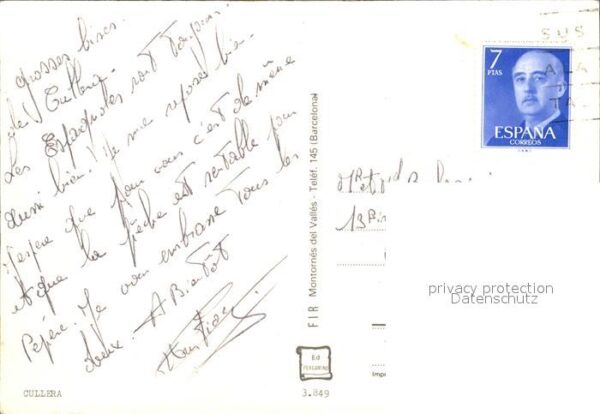 grosses bises
de Cullera.
Les Espagnoles sont toujours
aussi bien. Je me repose bien.
J'espère que pour vous c'est de même
et que la pêche est rentable pour
Pépère. Je vous embrasse tous les
deux. A Bientôt
FIR Montornés del Vallés - Teléf. 145 (Barcelona)
7
PTAS
ESPAÑA
CORREOS
SUS
ALA
TA
Mr et
13 Bis
privacy protection
Datenschutz
Ed
PERGAMINO
Imp
CULLERA
3.849